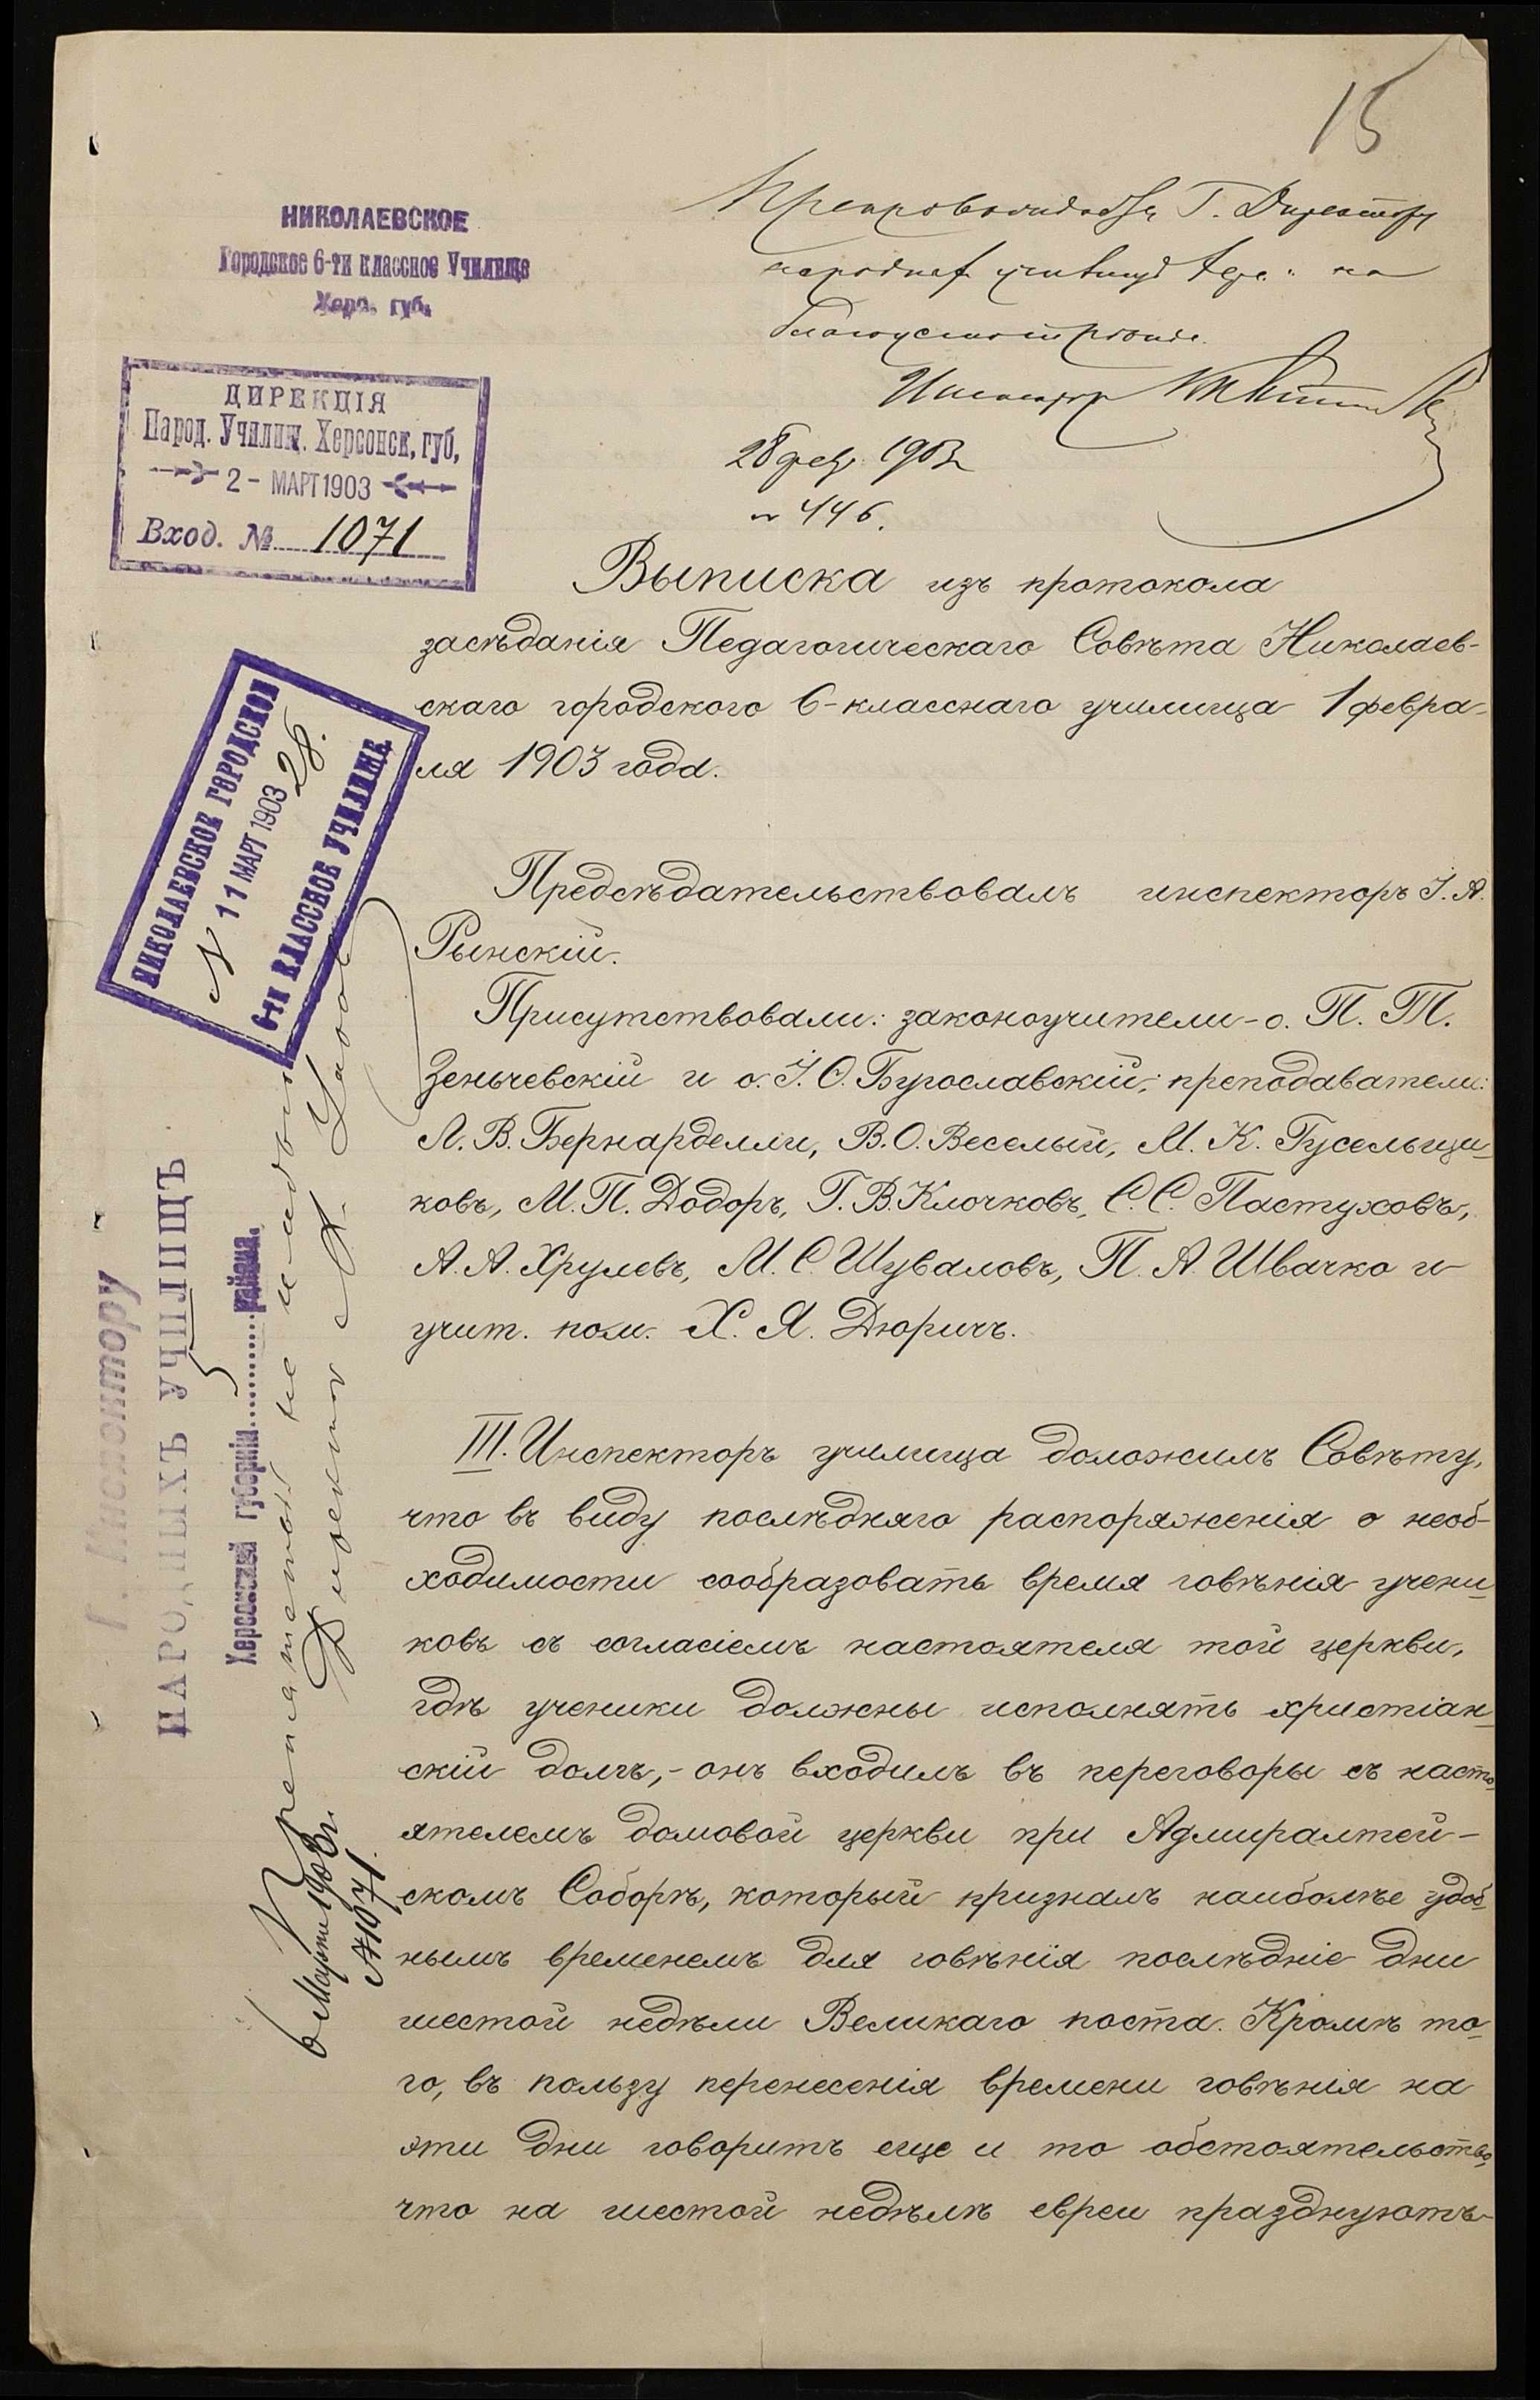 15
НИКОЛАЕВСКОЕ
Городское 6-ти классное Училище
Херс. губ.
Препровождается Г. Директору
народных училищ на
благоусмотрение.
Инспектор
28 февр. 1903 г.
№ 446.
ДИРЕКЦІЯ
Народ. Училищ. Херсонск. губ.
2 - МАРТ 1903
Вход. № 1071
Выписка изъ протокола
засѣданія Педагогическаго Совѣта Николаев-
скаго городского 6-класснаго училища 1 февра-
ля 1903 года.
НИКОЛАЕВСКОЕ ГОРОДСКОЕ
N 11 МАРТ 1903 28.
6-ти КЛАССНОЕ УЧИЛИЩЕ
Предсѣдательствовалъ инспекторъ І. А.
Рынскій.
Присутствовали: законоучители - о. П. Т.
Зеньчевскій и о. І. О. Бурославскій; преподаватели:
Л. В. Бернарделли, В. О. Веселый, М. К. Гусельщи-
ковъ, М. П. Додоръ, Г. В. Клочковъ, С. С. Пастуховъ,
А. А. Хрулевъ, М. С. Шуваловъ, П. А. Швачко и
учит. пом. Х. Я. Дюричъ.
Г. Инспектору
НАРОДНЫХЪ УЧИЛИЩЪ
Херсонской губерніи 5 района.
Препятствій не имѣю
Директоръ
6 Марта 1903 г.
№ 1071.
III. Инспекторъ училища доложилъ Совѣту,
что въ виду послѣдняго распоряженія о необ-
ходимости сообразовать время говѣнія учени-
ковъ съ согласіемъ настоятеля той церкви,
гдѣ ученики должны исполнять христіан-
скій долгъ, - онъ входилъ въ переговоры съ насто-
ятелемъ домовой церкви при Адмиралтей-
скомъ Соборѣ, который призналъ наиболѣе удоб-
нымъ временемъ для говѣнія послѣдніе дни
шестой недѣли Великаго поста. Кромѣ то-
го, въ пользу перенесенія времени говѣнія на
эти дни говоритъ еще и то обстоятельство,
что на шестой недѣлѣ евреи празднуютъ